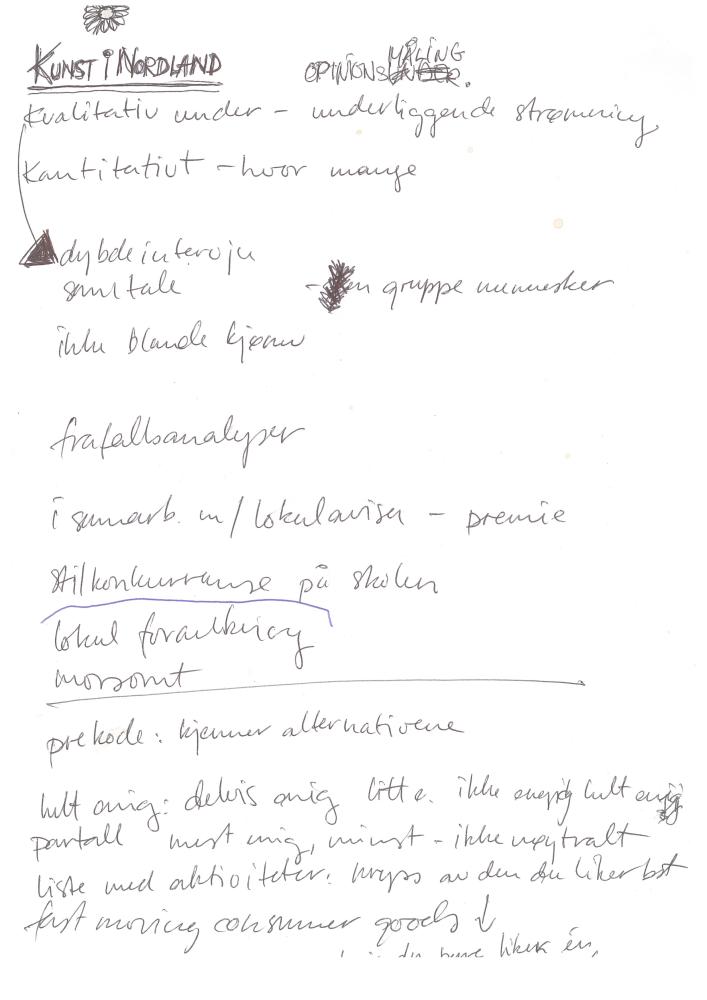 KUNST I NORDLAND
OPINIONSMÅLING.
Kvalitativ under - underliggende strømning
Kantitativt - hvor mange
dybdeintervju
samtale - en gruppe mennesker
ikke blande kjønn
frafallsanalyser
i samarb. m/lokalaviser - premie
stilkonkurranse på skolen
lokal forankring
morsomt
prekode: kjenner alternativene
helt enig: delvis enig litt e. ikke enig helt enig
partall mest enig, minst - ikke nøytralt
liste med aktiviteter. kryss av den du liker best
fast moving consumer goods ↓
du bare liker én,